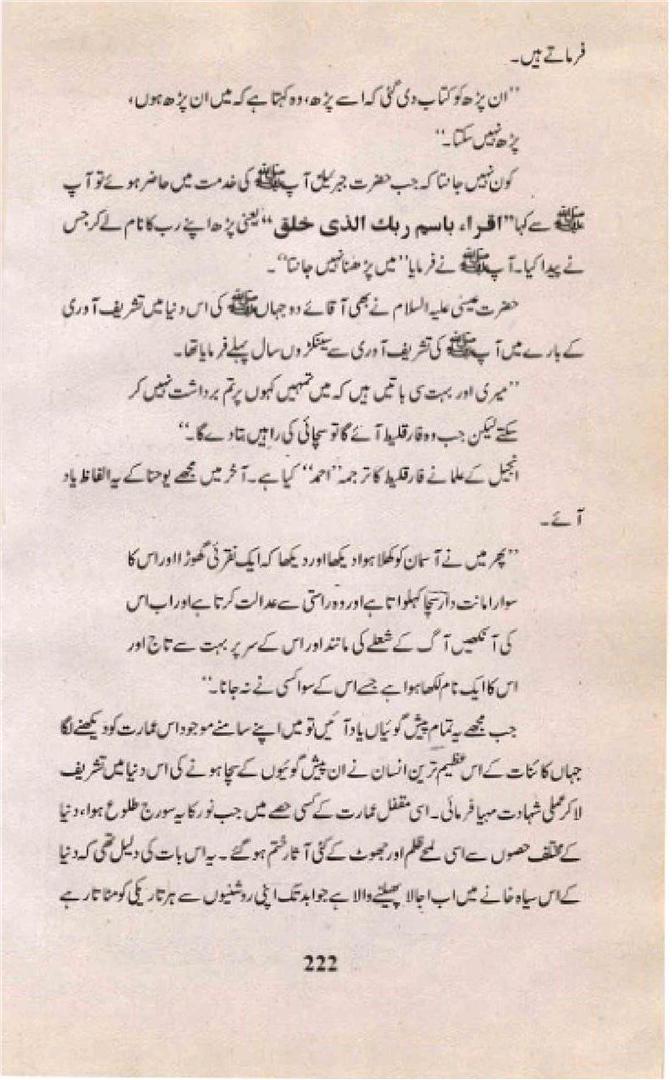 فرماتے ہیں۔
"ان پڑھ کو کتاب دی گئی کہ اسے پڑھ، وہ کہتا ہے کہ میں ان پڑھ ہوں،
پڑھ نہیں سکتا۔"
کون نہیں جانتا کہ جب حضرت جبریلؑ آپ ﷺ کی خدمت میں حاضر ہوئے تو آپ
ﷺ سے کہا "اقراء باسم ربك الذی خلق" یعنی پڑھ اپنے رب کا نام لے کر جس
نے پیدا کیا۔ آپ ﷺ نے فرمایا "میں پڑھنا نہیں جانتا"۔
حضرت عیسیٰ علیہ السلام نے بھی آقائے دو جہاں ﷺ کی اس دنیا میں تشریف آوری
کے بارے میں آپ ﷺ کی تشریف آوری سے سینکڑوں سال پہلے فرمایا تھا۔
"میری اور بہت سی باتیں ہیں کہ میں تمہیں کہوں پر تم برداشت نہیں کر
سکتے لیکن جب وہ فارقلیط آئے گا تو سچائی کی راہیں بتا دے گا۔"
انجیل کے علما نے فارقلیط کا ترجمہ "احمد" کیا ہے۔ آخر میں مجھے یوحنا کے یہ الفاظ یاد
آئے۔
"پھر میں نے آسمان کو کھلا ہوا دیکھا اور دیکھا کہ ایک نقرئی گھوڑا اور اس کا
سوار امانت دار سچا کہلواتا ہے اور وہ راستی سے عدالت کرتا ہے اور اب اس
کی آنکھیں آگ کے شعلے کی مانند اور اس کے سر پر بہت سے تاج اور
اس کا ایک نام لکھا ہوا ہے جسے اس کے سوا کسی نے نہ جانا۔"
جب مجھے یہ تمام پیش گوئیاں یاد آئیں تو میں اپنے سامنے موجود اس عمارت کو دیکھنے لگا
جہاں کائنات کے اس عظیم ترین انسان نے ان پیش گوئیوں کے سچا ہونے کی اس دنیا میں تشریف
لا کر عملی شہادت مہیا فرمائی۔ اسی مقفل عمارت کے کسی حصے میں جب نور کا یہ سورج طلوع ہوا، دنیا
کے مختلف حصوں سے اسی لمحے ظلم اور جھوٹ کے کئی آثار ختم ہو گئے۔ یہ اس بات کی دلیل تھی کہ دنیا
کے اس سیاہ خانے میں اب اجالا پھیلنے والا ہے جو ابد تک اپنی روشنیوں سے ہر تاریکی کو مٹاتا رہے
222